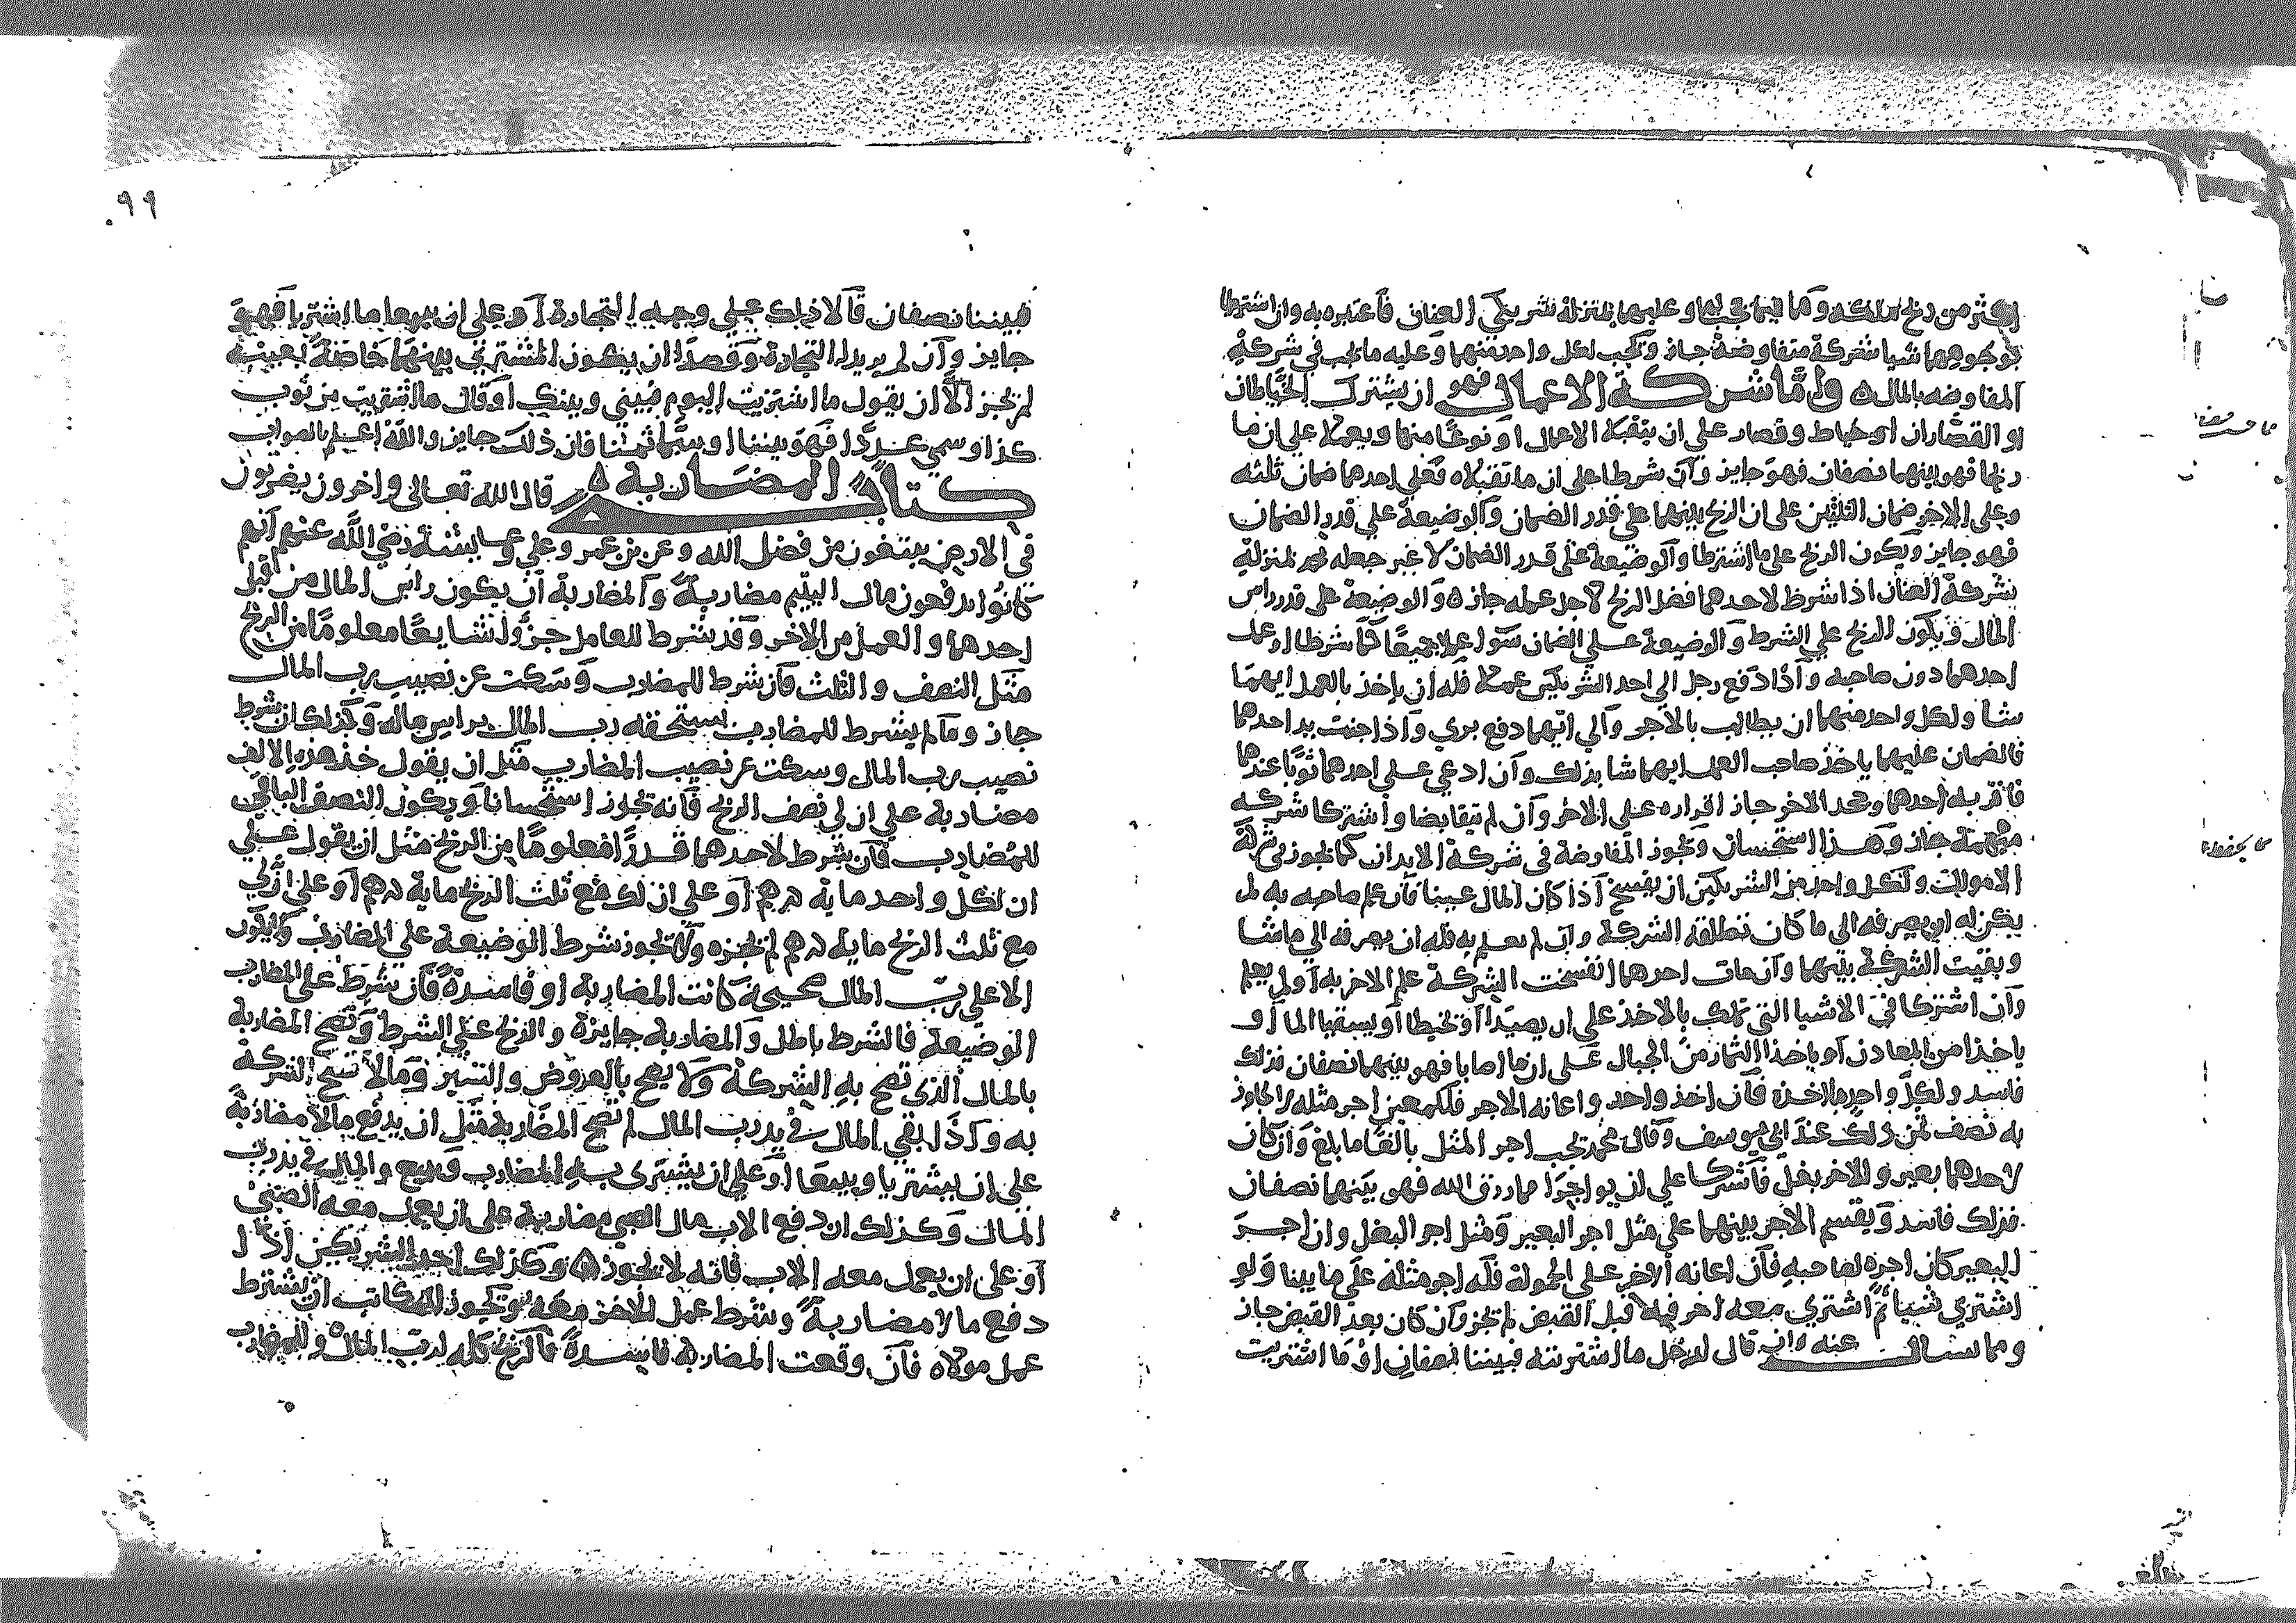 اكثر من ربح ذلك وما يجب لهما وعليهما بمنزلة شريكي العنان فاعتبره به وان اشتركا
بوجوههما شيا شركة مفاوضة جاز ويجب لكل واحد منهما وعليه ما يجب في شركة
المفاوضه بالمال ٥ واما شركة الاعمال فهو ان يشترك الخياطان
او القصاران او خياط وقصار على ان يتقبلا الاعمال او نوعا منها ويعملا على ان ما
ربحا فهو بينهما نصفان فهو جايز وان شرطا على ان ما تقبلاه فعلى احدهما ضمان ثلثه
وعلى الاخر ضمان الثلثين على ان الربح بينهما على قدر الضمان والوضيعة على قدر الضمان
فهو جايز ويكون الربح على ما اشترطا والوضيعة على قدر الضمان لا غير جعله بمنزلة
شركة العنان اذا شرط لاحدهما فضل الربح لاجل عمله جاز ٥ والوضيعة على قدر راس
المال ويكون الربح على الشرط والوضيعة على الضمان سوا عملا جميعا كما شرطا او عمل
احدهما دون صاحبه واذا دفع رجل الى احد الشريكين عملا فله ان ياخذ بالعمل ايهما
شا ولكل واحد منهما ان يطالب بالاجر والى ايهما دفع بري واذا جنت يد احدهما
فالضمان عليهما ياخذ صاحب العمل ايهما شا بذلك وان ادعي على احدهما ثوبا عندهما
فاقر به احدهما وجحد الاخر جاز اقراره على الاخر وان لم يتقابضا واشتركا شركه
مبهمة جاز وهذا استحسان وتجوز المفاوضة في شركة الابدان كما تجوز في شركة
الاموال ولكل واحد من الشريكين ان يفسخ اذا كان المال عينا فان علم صاحبه به لم
يكن له ان يصرفه الى ما كان تطلقه الشركة وان لم يعلم به فله ان يصرفه الى ما شا
وبقيت الشركة بينهما وان مات احدهما انفسخت الشركة علم الاخر به او لم يعلم
وان اشتركا في الاشيا التي تملك بالاخذ على ان يصيدا او يحتطبا او يستقيا الما او
ياخذا من المعادن او ياخذا الثمار من الجبال على ان ما اصابا فهو بينهما نصفان فذلك
فاسد ولكل واحد ما اخذه فان اخذ واحد واعانه الاخر فللمعين اجر مثله لا يجاوز
به نصف ثمن ذلك عند ابي يوسف وقال محمد يجب اجر المثل بالغا ما بلغ وان كان
لاحدهما بعير وللاخر بغل فاشتركا على ان يواجرا فما رزق الله فهو بينهما نصفان
فذلك فاسد ويقسم الاجر بينهما على مثل اجر البعير ومثل اجر البغل وان اجر
البعير كان اجره لصاحبه فان اعانه الاخر على الحمولة فله اجر مثله على ما بينا ولو
اشترى شيا ثم اشترى معه اخر فيه قبل القبض لم تجز وان كان بعد القبض جاز
ومما يسال عنه وان قال لرجل ما اشتريته فبيننا نصفان او ما اشتريت
٩٩
فبيننا نصفان قالا ذلك على وجه التجارة او على ان يبيعا ما اشتريا فهو
جايز وان لم يريدا التجارة وقصدا ان يكون المشترى بينهما خاصة بعينه
لم يجز الا ان يقول ما اشتريت اليوم فبيني وبينك او قال ما اشتريت من ثوب
كذا وسمى عددا فهو بيننا او سميا ثمنا فان ذلك جايز والله اعلم بالصواب
كتاب المضاربة ٥ قال الله تعالى واخرون يضربون
في الارض يبتغون من فضل الله وعن بن عمر وعلي وعايشة رضي الله عنهم انهم
كانوا يدفعون مال اليتيم مضاربة والمضاربة ان يكون راس المال من قبل
احدهما والعمل من الاخر وقد شرط للعامل جزوا شايعا معلوما من الربح
مثل النصف والثلث فان شرط للمضارب وسكت عن نصيب رب المال
جاز وما لم يشرط للمضارب يستحقه رب المال براس ماله وكذلك ان شرط
نصيب رب المال وسكت عن نصيب المضارب مثل ان يقول خذ هذه الالف
مضاربة على ان لي نصف الربح فانه يجوز استحسانا ويكون النصف الباقي
للمضارب فان شرط لاحدهما قدرا معلوما من الربح مثل ان يقول على
ان لكل واحد ماية درهم او على ان لك مع ثلث الربح ماية درهم او على ان لي
مع ثلث الربح ماية درهم لم يجزه ولا يجوز شرط الوضيعة على المضارب ولا يكون
الا على رب المال صحيحة كانت المضاربة او فاسدة فان شرط على المضارب
الوضيعة فالشرط باطل والمضاربة جايزة والربح على الشرط وتصح المضاربة
بالمال الذى تصح به الشركة ولا يصح بالعروض والتبر وما لا تصح الشركة
به واذا بقي المال في يد رب المال لم تصح المضاربة مثل ان يدفع مالا مضاربة
على ان يشتريا ويبيعا او على ان يشترى به المضارب ويبيع والمال في يد رب
المال وكذلك ان دفع الاب مال الصبي مضاربة على ان يعمل معه الصبي
او على ان يعمل معه الاب فانه لا يجوز ٥ وكذلك احد الشريكين اذا
دفع مالا مضاربة وشرط عمل الاخر معه ويجوز للمكاتب ان يشترط
عمل مولاه فان وقعت المضاربة فاسدة فالربح كله لرب المال وللمضارب